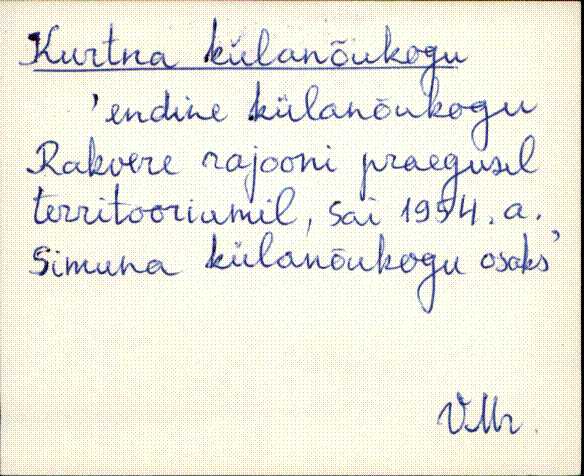 Kurtna külanõukogu
'endine külanõukogu
Rakvere rajooni praegusel
territooriumil, sai 1954. a.
Simuna külanõukogu osaks'
VMr.